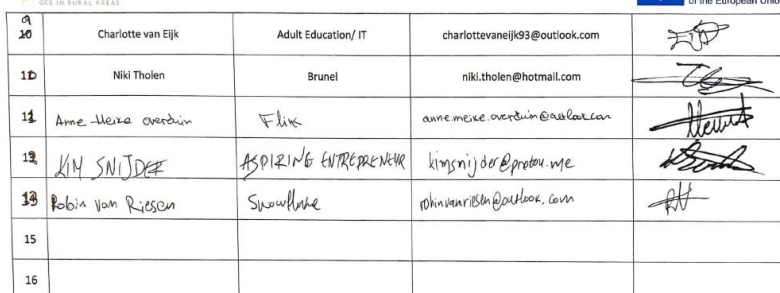 GCE IN RURAL AREAS
of the European Union
9 10 Charlotte van Eijk Adult Education/ IT charlottevaneijk93@outlook.com
10 Niki Tholen Brunel niki.tholen@hotmail.com
11 Anne Meike Overduin Flix anne.meike.overduin@outlook.com
12 KIM SNIJDER ASPIRING ENTREPRENEUR kimsnijder@proton.me
13 Robin van Riesen Snowflake robinvanriesen@outlook.com
15
16